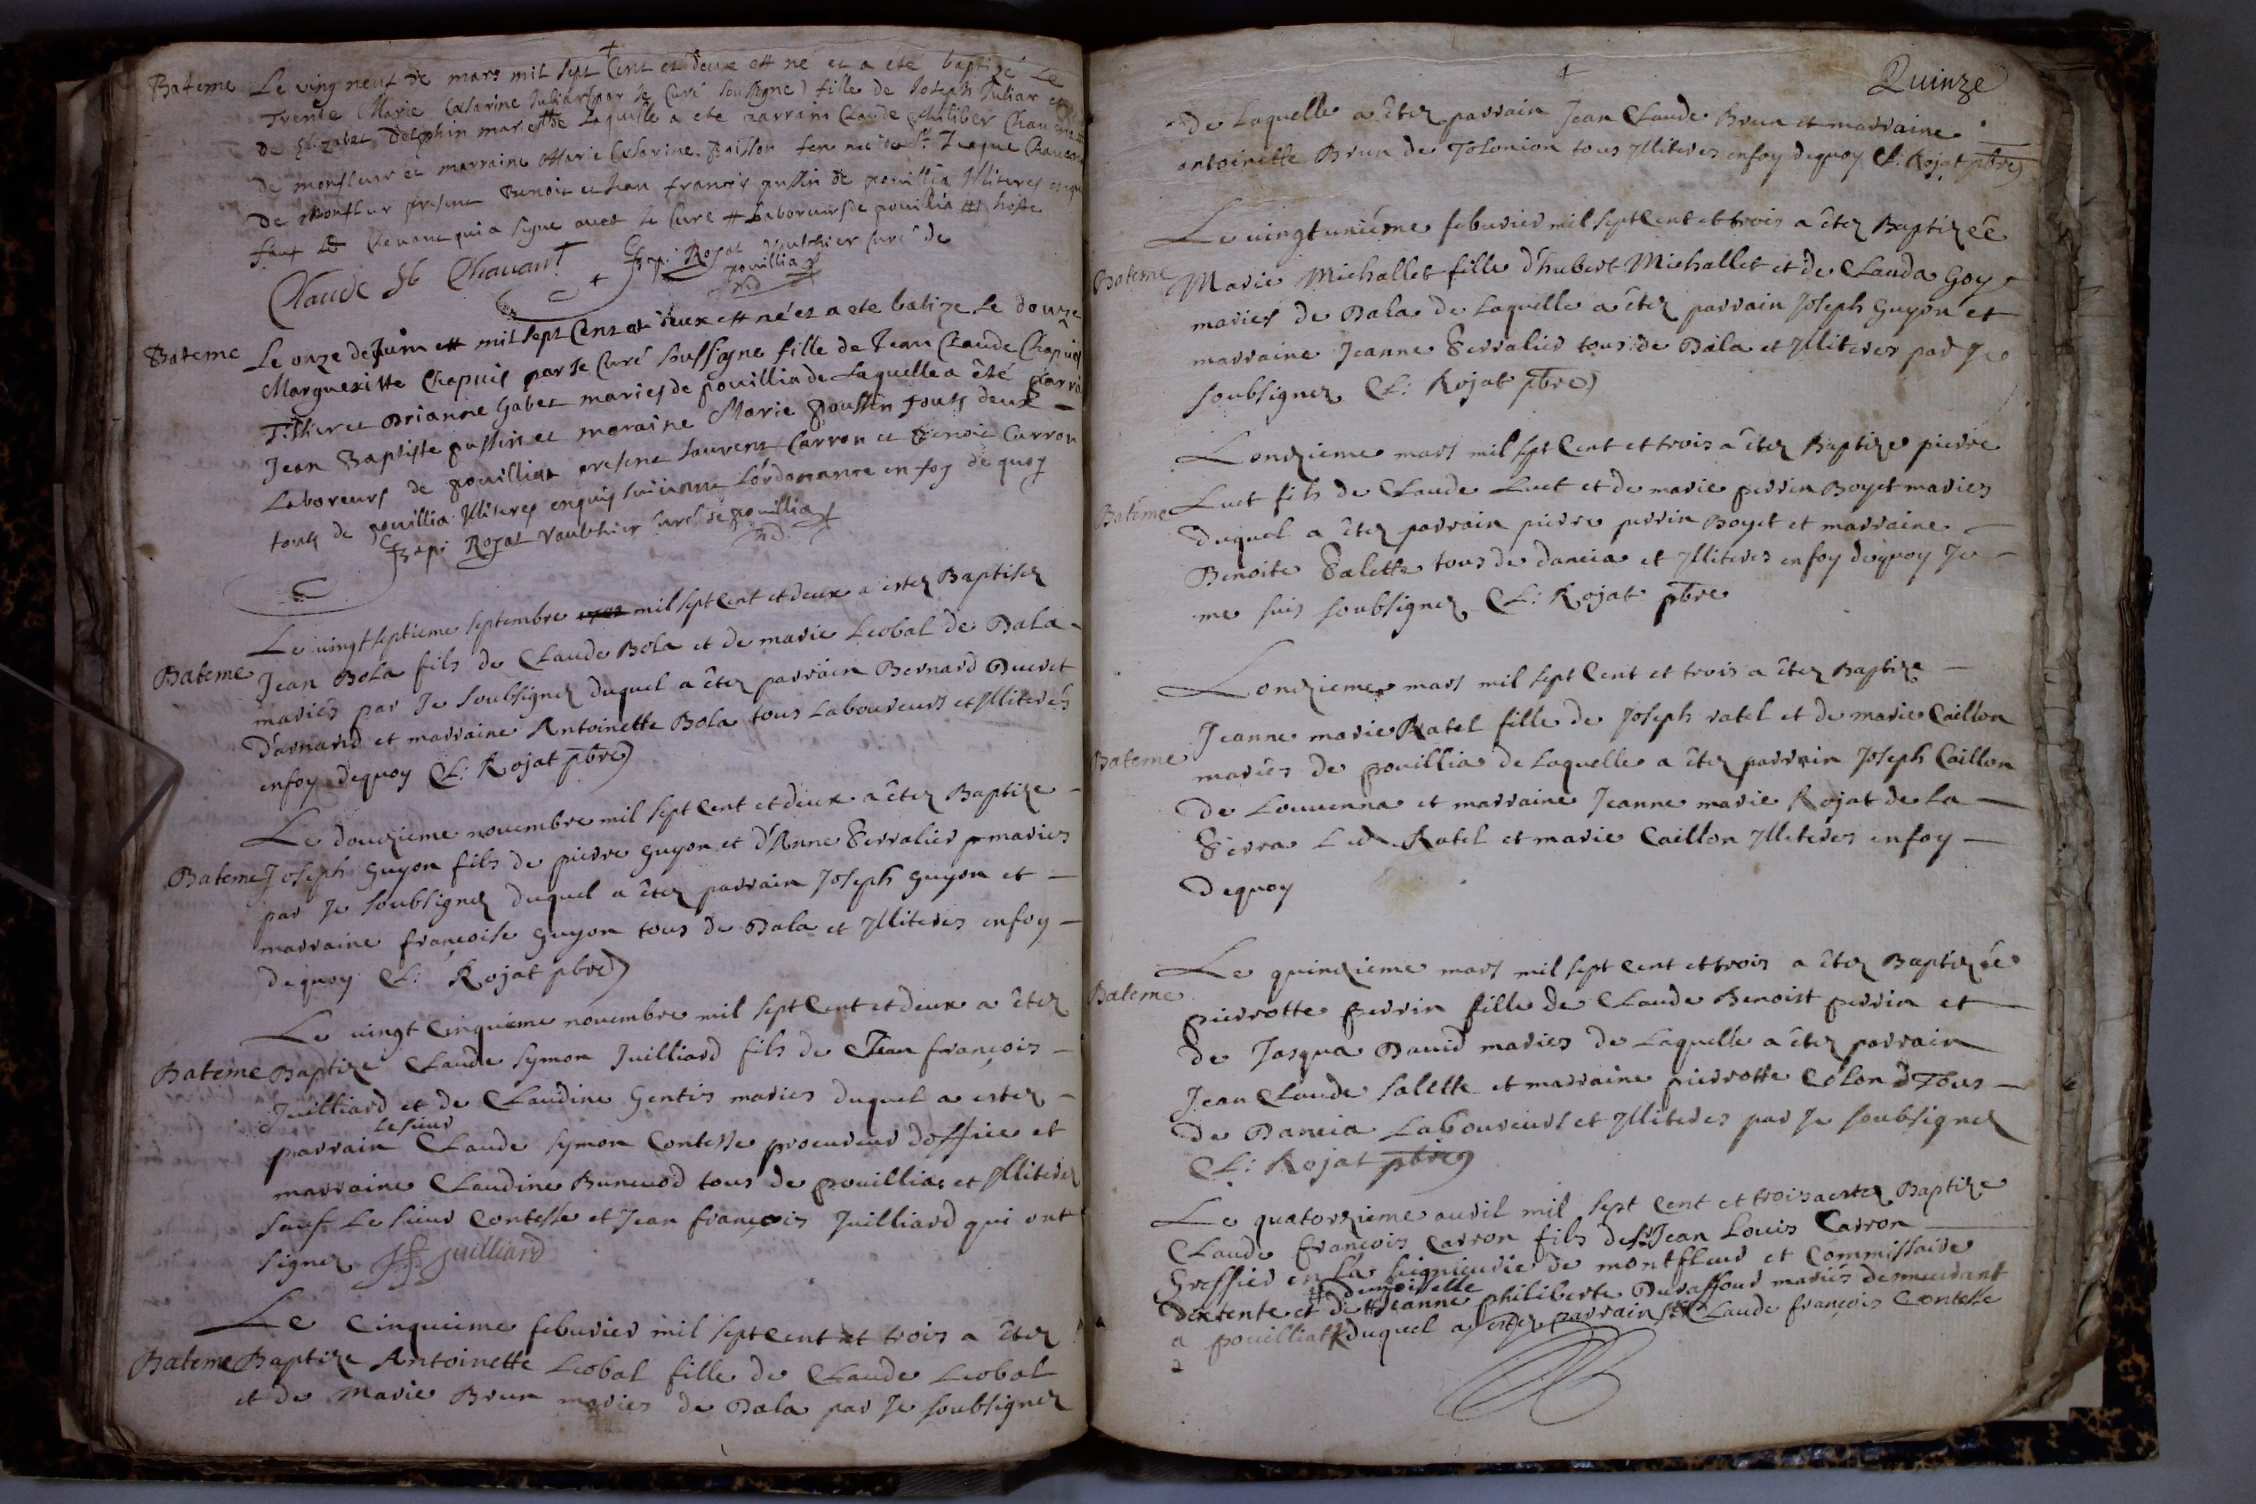 Bateme Le ving neuf de mars mil sept Cent et deux est né et a ete baptizé Le
Trente Marie Caterine Juliar par Je Curé soussigne fille de Joseph Juliar et
De Elizabet Delphin maries de Laquelle a ete parrain Claude Philiber
De monsieur et marraine Marie Caterine Buisson femme de Sr Jeaque
De Monfleur present Benoit et Jean francois pussin de pouillia Illiteres
sauf Le Chavant qui a signe avec Je Cure Laboreurs de pouillia
Claude Chavant Rojat Vaulchier Curé de
pouillia
Bateme Le onze de Juin mil sept Cens et deux est né et a ete batize Le douze
Margueritte Chapuis par Je Curé soussigne fille de Jean Claude Chapuis
et Brianne Gabet maries de pouillia de Laquelle a été parrain
Jean Baptiste pussin et maraine Marie poussin tous deux
Laboreurs de pouilliat present Laurent Carron et Benoit Carron
tous de pouillia Illiteres enquis suivant L'ordonnance en foy de quoy
Rojat Vaulchier Curé de pouillia
Le vingt septieme septembre mil sept Cent et deux a estez Baptisez
Bateme Jean Bola fils de Claude Bola et de marie Leobal de Dala
mariés par Je soubsignez duquel a êtez parrain Bernard Dueret
D'arnand et marraine Antoinette Bola tous Laboureurs et Illiterés
en foy dequoy C: Rojat pbre
Le douzieme novembre mil sept Cent et deux a êtez Baptize
Bateme Joseph Guyon fils de pierre guyon et d'Anne Serralier maries
par Je soubsignez duquel a êtez parrain Joseph guyon et
marraine françoise guyon tous de Dala et Illiteres en foy
dequoy C: Rojat pbre
Le vingt Cinquieme novembre mil sept Cent et deux a êtez
Bateme Baptize Claude Symon Juilliard fils de Jean françois
Juilliard et de Claudine Gentis maries duquel a estez
Le sieur
parrain Claude Symon Contesse procureur d'office et
marraine Claudine Bunevod tous de pouillia et Illiterez
sauf Le sieur Contesse et Jean françois Juilliard qui ont
signez JF Juilliard
Le Cinquieme feburier mil sept Cent et trois a êtez
Bateme Baptize Antoinette Leobal fille de Claude Leobal
et de Marie Brun maries de Dala par Je soubsignez
Quinze
de Laquelle a êtez parrain Jean Claude Brun et marraine
antoinette Brun de Tolonion tous Illiteres en foy dequoy C: Rojat pbre
Le vingt uniéme feburier mil sept Cent et trois a êtez Baptizéé
Bateme Marie Michallet fille d'hubert Michallet et de Clauda Goy
mariés de Dala de Laquelle a êtez parrain Joseph Guyon et
marraine Jeanne Serralier tous de Dala et Illiteres par Je
soubsignez C: Rojat pbre
Lonzieme mars mil sept Cent et trois a êtez Baptize pierre
Bateme Luet fils de Claude Luet et de marie perrin Boyet maries
duquel a êtez parrain pierre perrin Boyet et marraine
Benoite Salette tous de dancia et Illiteres en foy dequoy Je
me suis soubsignez C: Rojat pbre
Lonzieme mars mil sept Cent et trois a êtez Baptize
Jeanne marie Ratel fille de Joseph ratel et de marie Caillon
Bateme mariés de pouillia de Laquelle a êtez parrain Joseph Caillon
de Louvenna et marraine Jeanne marie Rojat de La
Serra Led Ratel et marie Caillon Illiteres en foy
dequoy
Le quinzieme mars mil sept Cent et trois a êtez Baptizée
Bateme pierrotte perrin fille de Claude Benoist perrin et
de Jasqua David maries de Laquelle a êtez parrain
Jean Claude Salette et marraine pierrotte Colon d Tous
de Dancia Laboureurs et Illiteres par Je soubsignez
C: Rojat pbre
Le quatorzieme avril mil sept Cent et trois a estez Baptize
Claude François Carron fils de Sr Jean Louis Carron
Greffier en La seigneurie de montfleur et Commissaire
demoiselle
dextente et de Jeanne philiberte Duraffour mariés demeurant
a pouilliat duquel a estez parrain Sr Claude françois Contesse